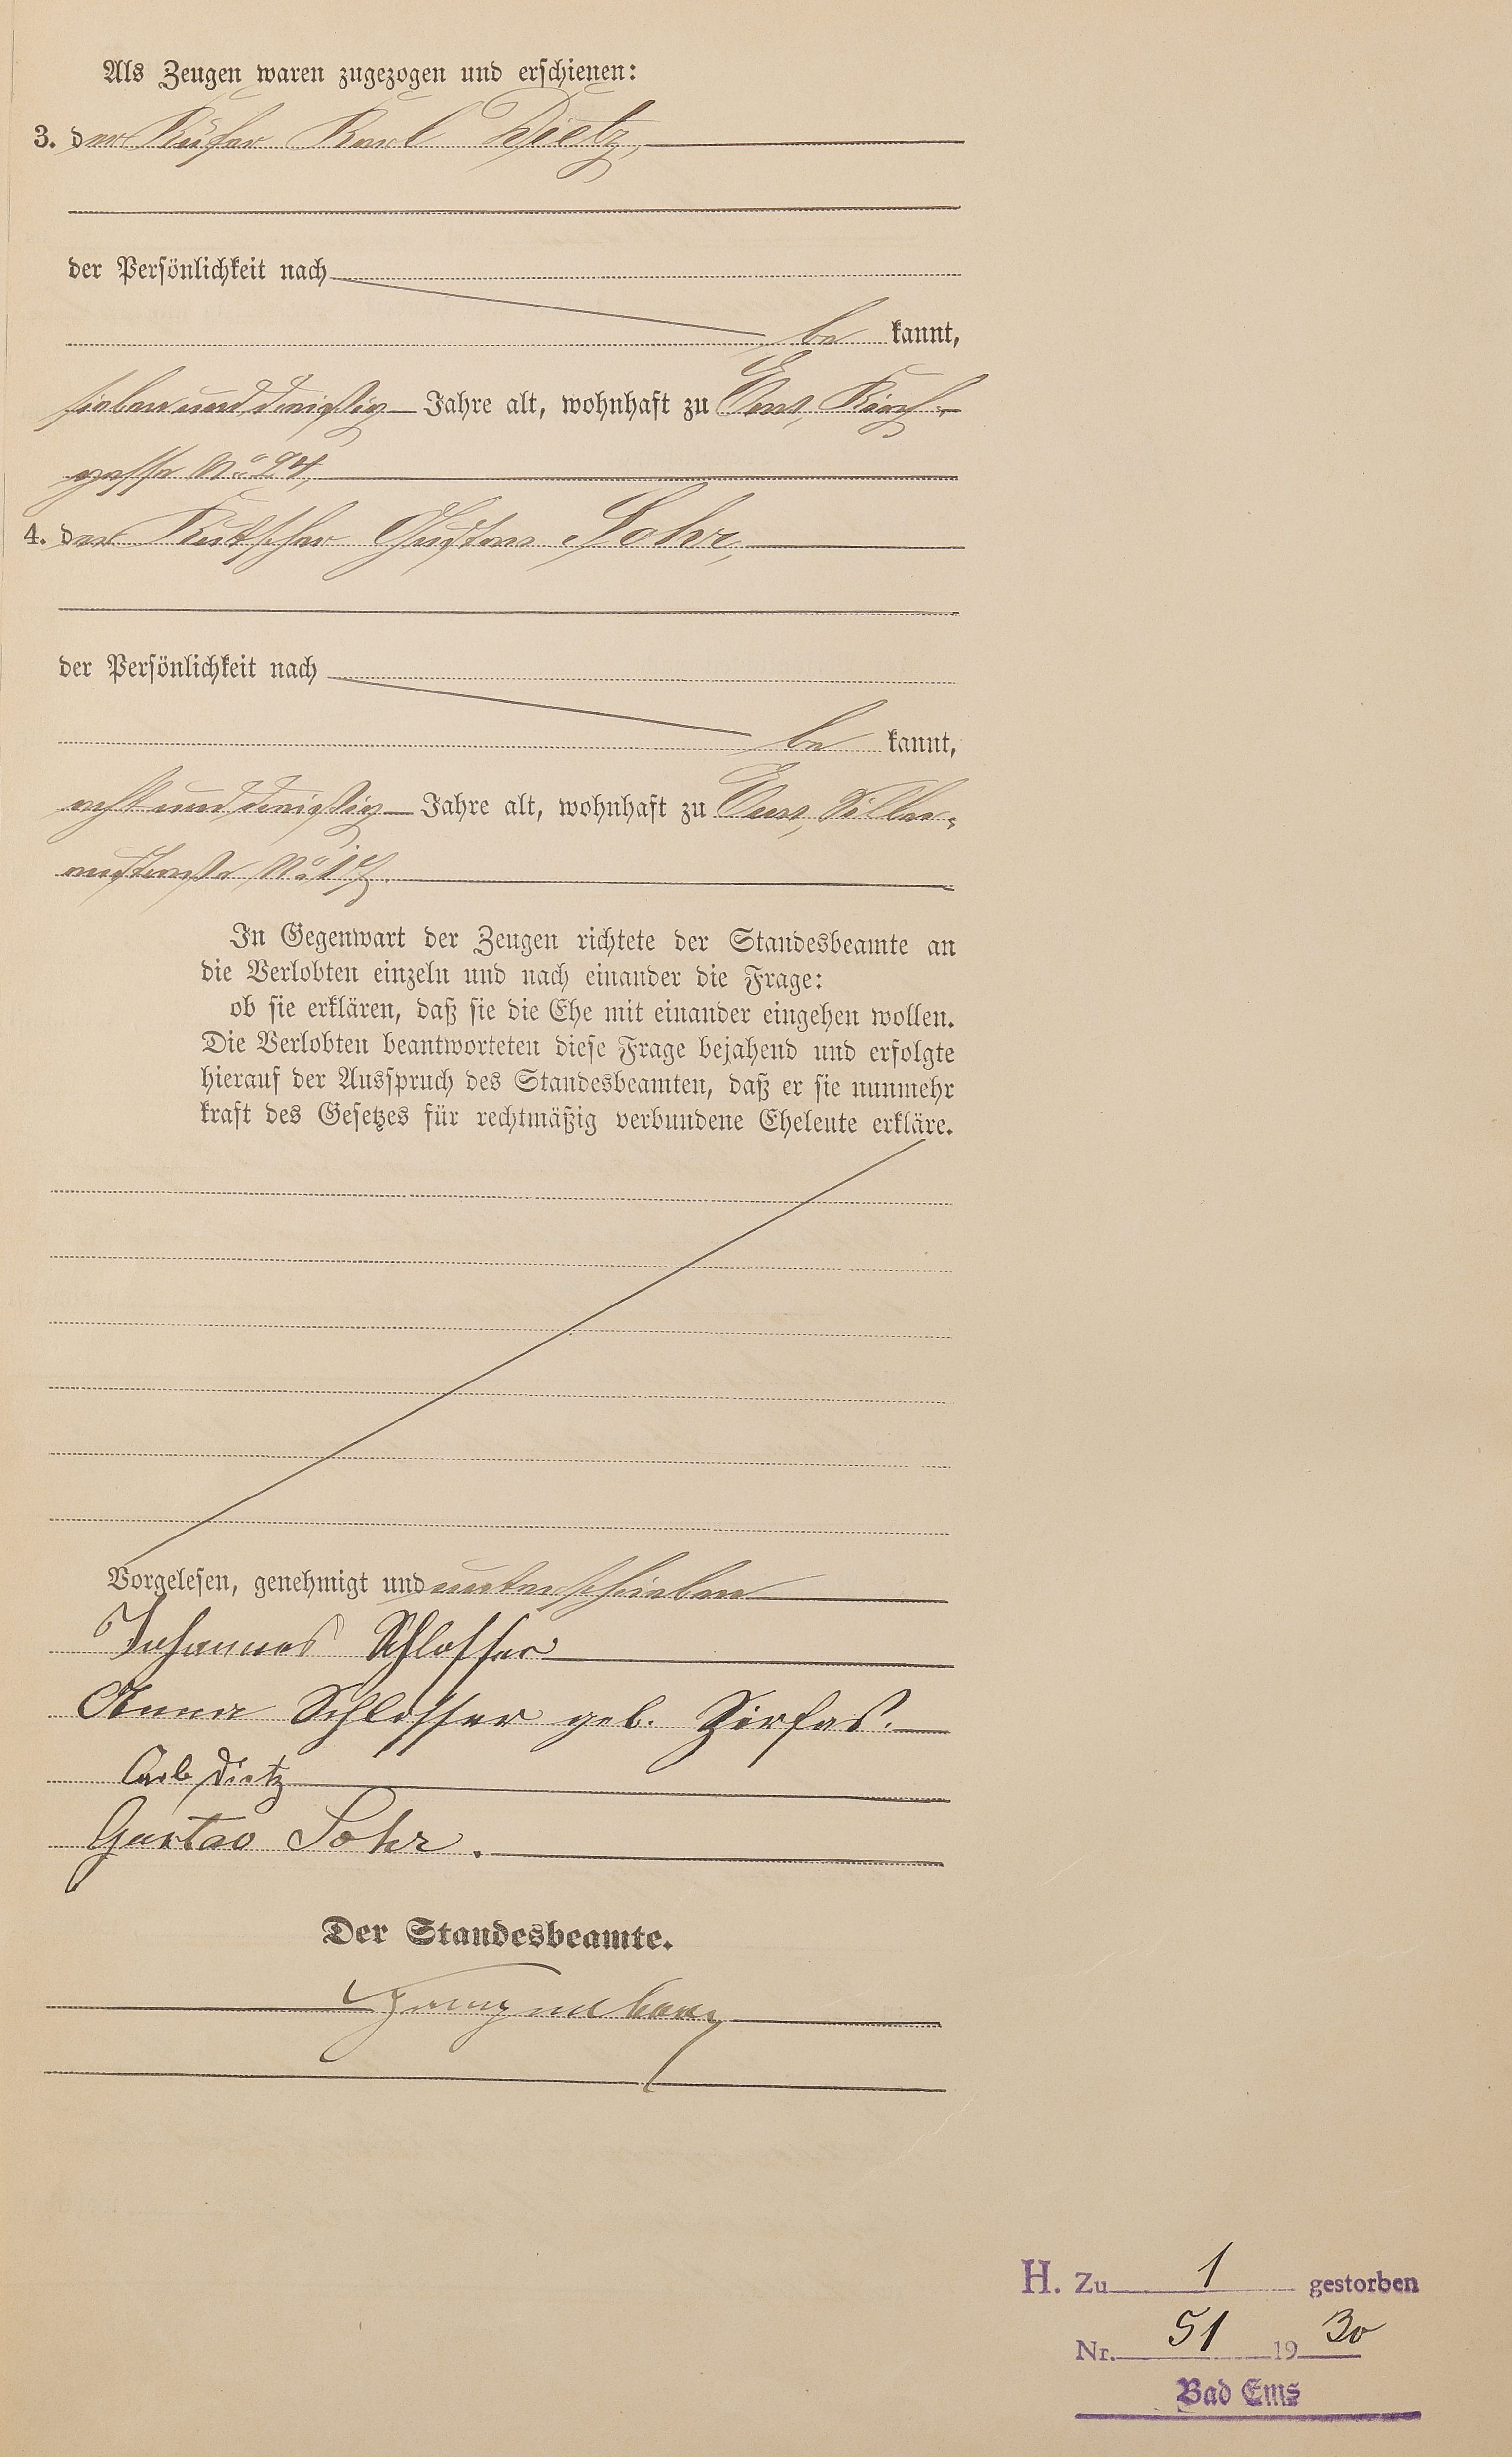 Als Zeugen waren zugezogen und erschienen:
3. der Küfer Karl Dietz,
der Persönlichkeit nach
be kannt,
siebenunddreißig Jahre alt, wohnhaft zu Ems, Kirch-
gasse No 24,
4. der Kutscher Gustav Sohr,
der Persönlichkeit nach
be kannt,
achtunddreißig Jahre alt, wohnhaft zu Ems,
No
In Gegenwart der Zeugen richtete der Standesbeamte an
die Verlobten einzeln und nach einander die Frage:
ob sie erklären, daß sie die Ehe mit einander eingehen wollen.
Die Verlobten beantworteten diese Frage bejahend und erfolgte
hierauf der Ausspruch des Standesbeamten, daß er sie nunmehr
kraft des Gesetzes für rechtmäßig verbundene Eheleute erkläre.
Vorgelesen, genehmigt und unterschrieben
Johannes Schlosser
Anna Schlosser geb. Zirfas.
Carl Dietz
Gustav Sohr.
Der Standesbeamte.
H. Zu 1 gestorben
Nr. 51 19 30
Bad Ems